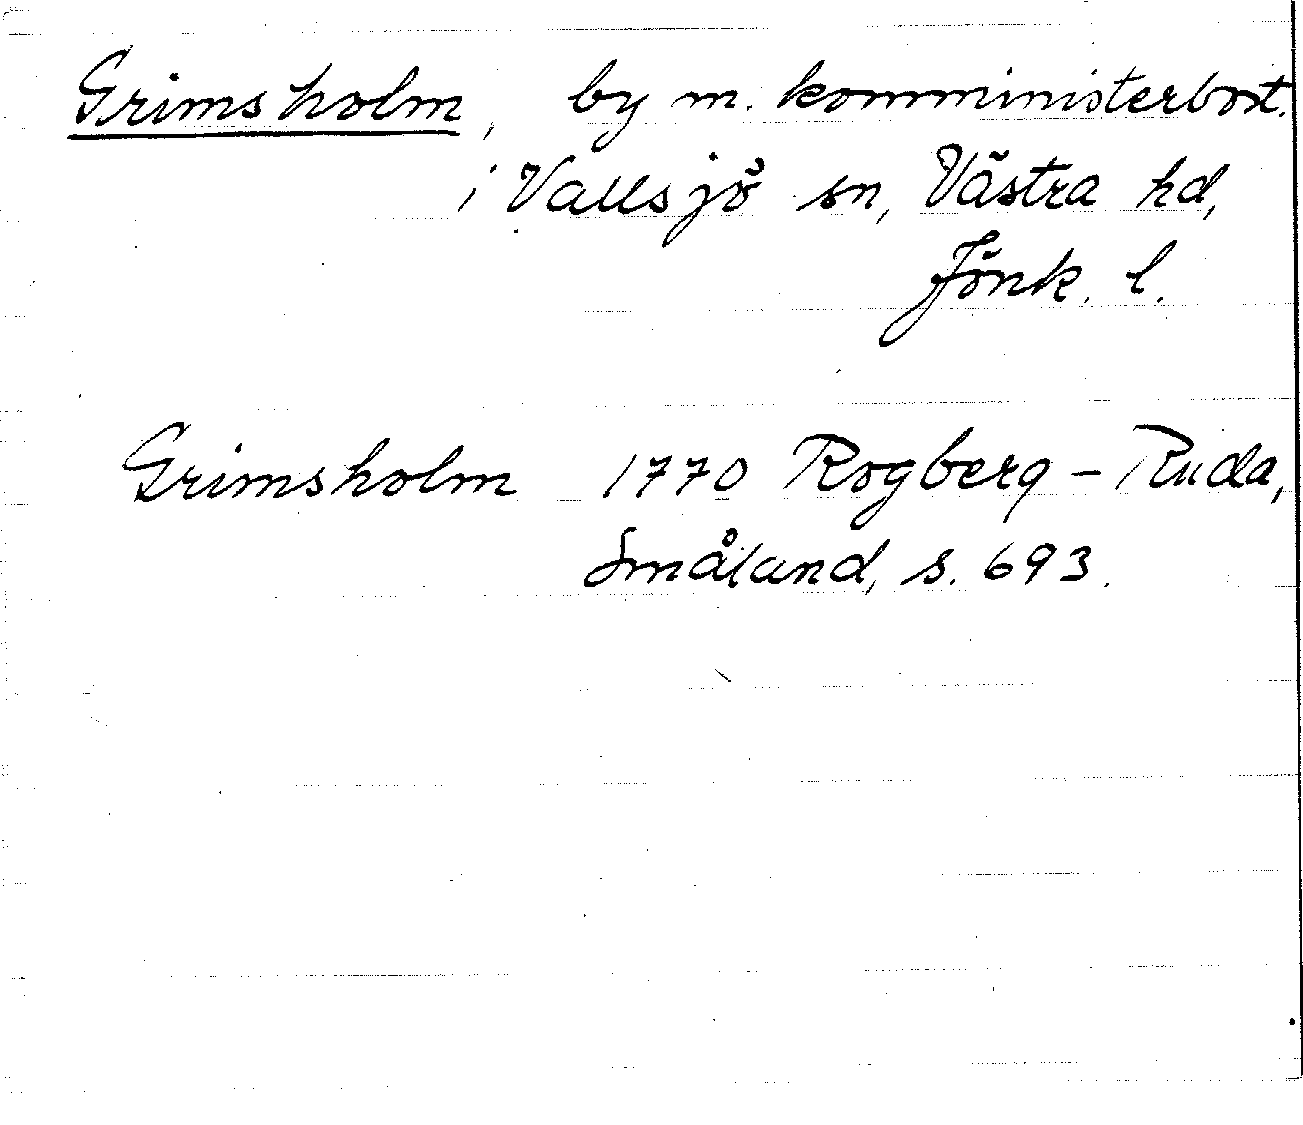 Grimsholm, by m. komministerbost.
i Vallsjö sn, Västra hd,
Jönk. l.
Grimsholm 1770 Rogberg - Ruda,
Småland, s. 693.